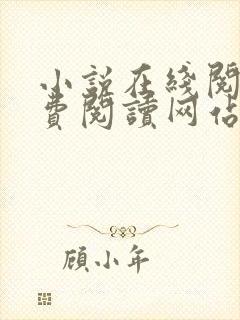 小說在綫閱
費閱讀网佔
顧小年